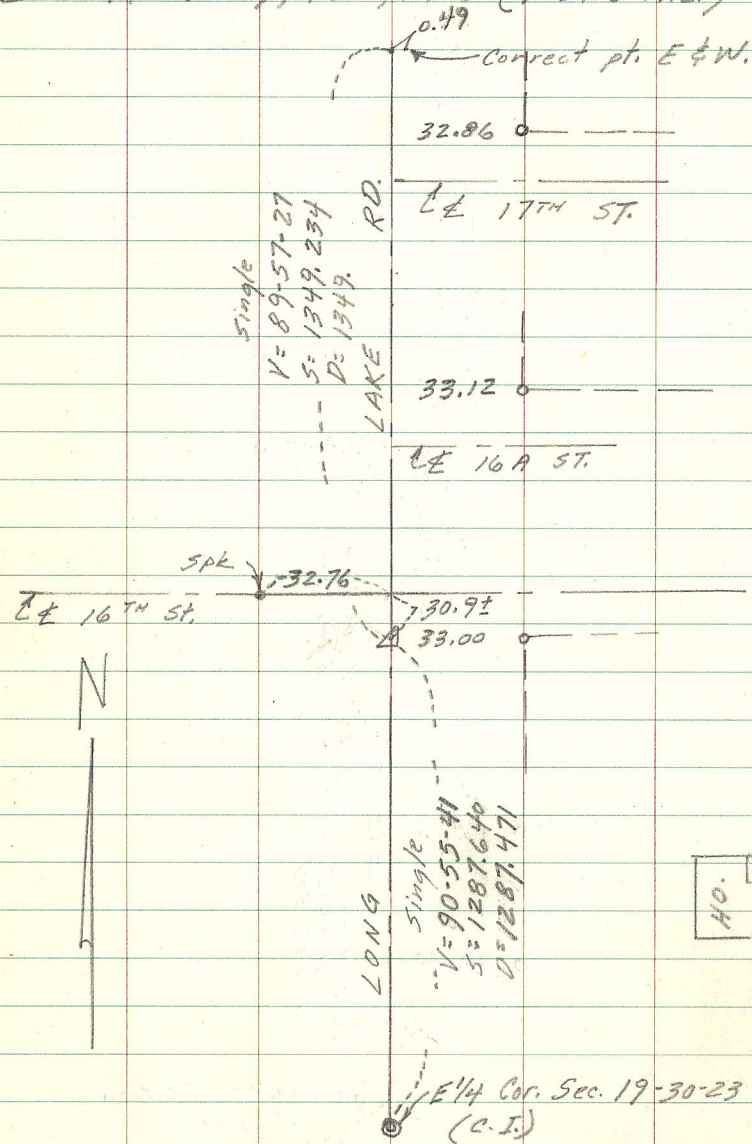 0.49
Correct pt. E & W.
32.86
℄ 17TH ST.
Single
V= 89-57-27
S= 1349.234
D= 1349.
LAKE RD.
33.12
℄ 16A ST.
spk
32.76
℄ 16TH St.
30.9±
33.00
N
LONG
Single
V= 90-55-41
S= 1287.640
D= 1287.471
HO.
E 1/4 Cor. Sec. 19-30-23
(C.I.)